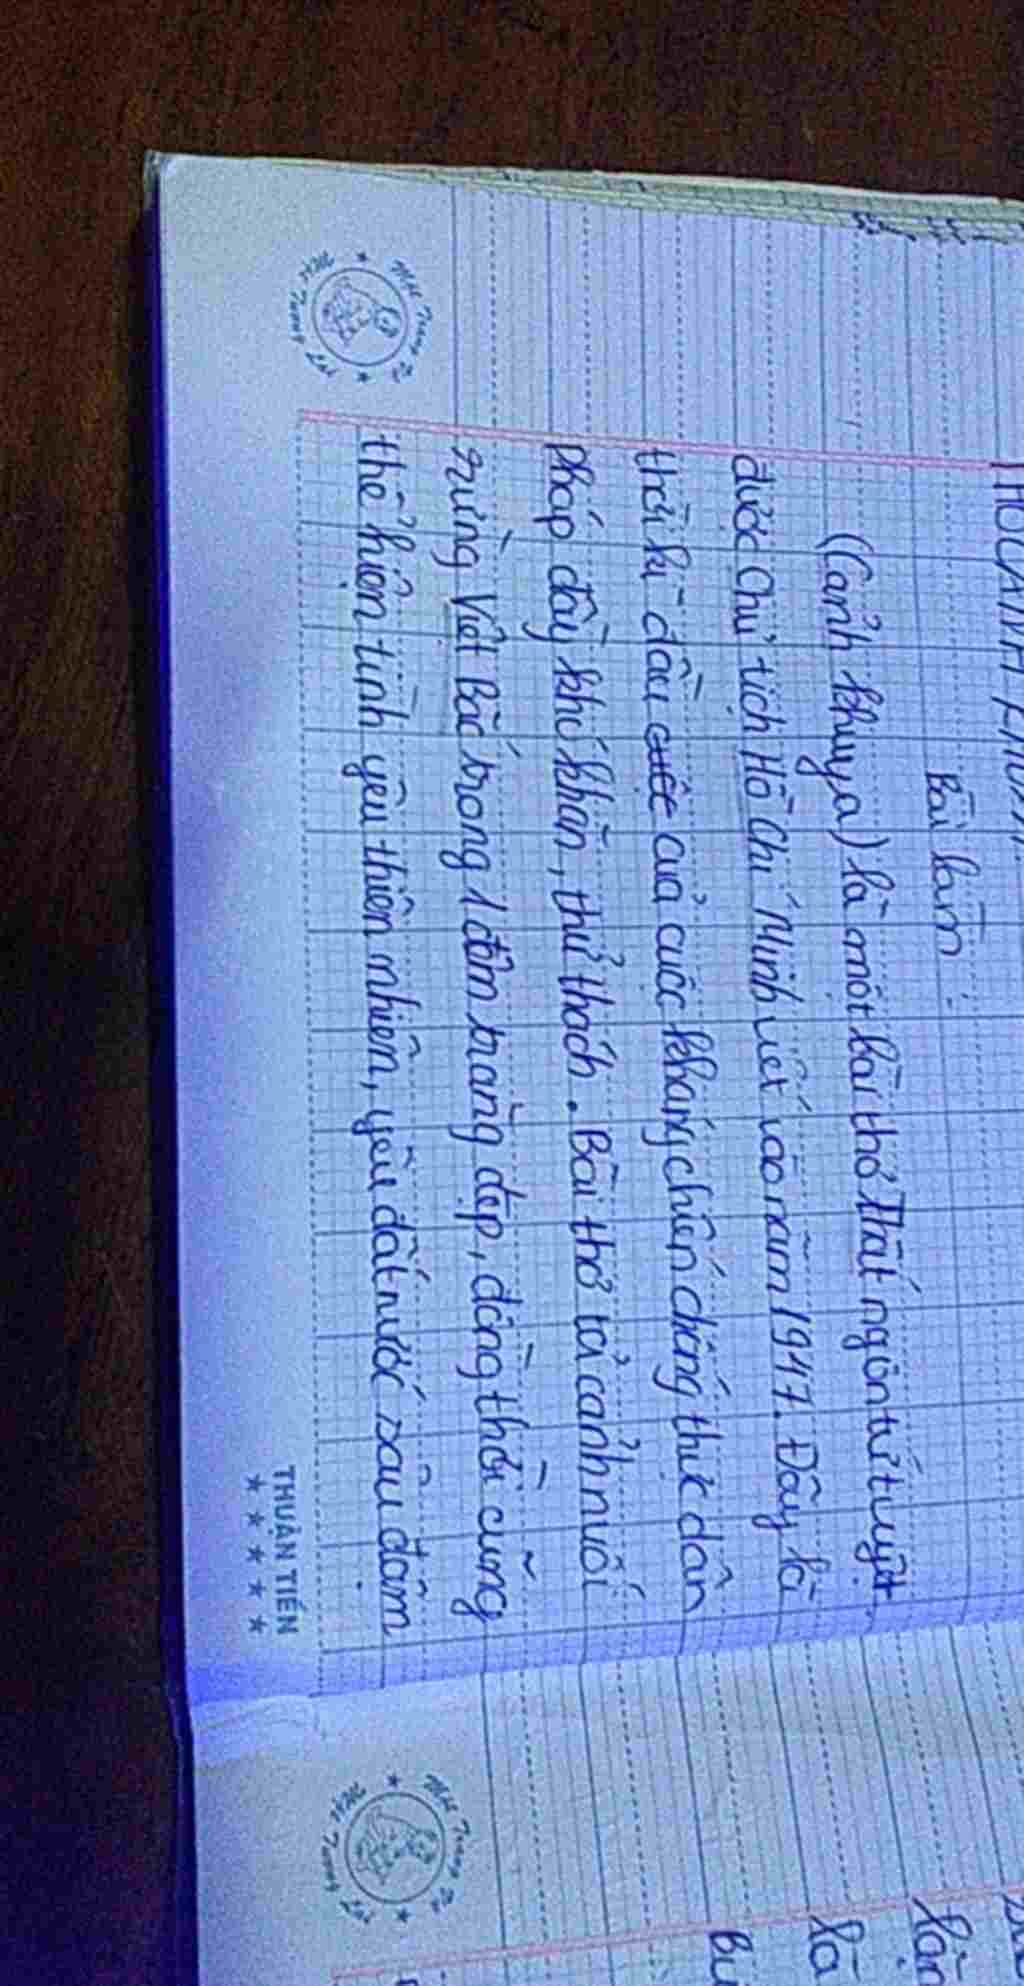 Bài làm:
(Cảnh khuya) là một bài thơ Thất ngôn tứ tuyệt
được Chủ tịch Hồ Chí Minh viết vào năm 1947. Đây là
thời kì đầu của cuộc kháng chiến chống thực dân
Pháp đầy khó khăn, thử thách. Bài thơ tả cảnh núi
rừng Việt Bắc trong 1 đêm trăng đẹp, đồng thời cũng
thể hiện tình yêu thiên nhiên, yêu đất nước sâu đậm
THUẬN TIẾN
★★★★★
là